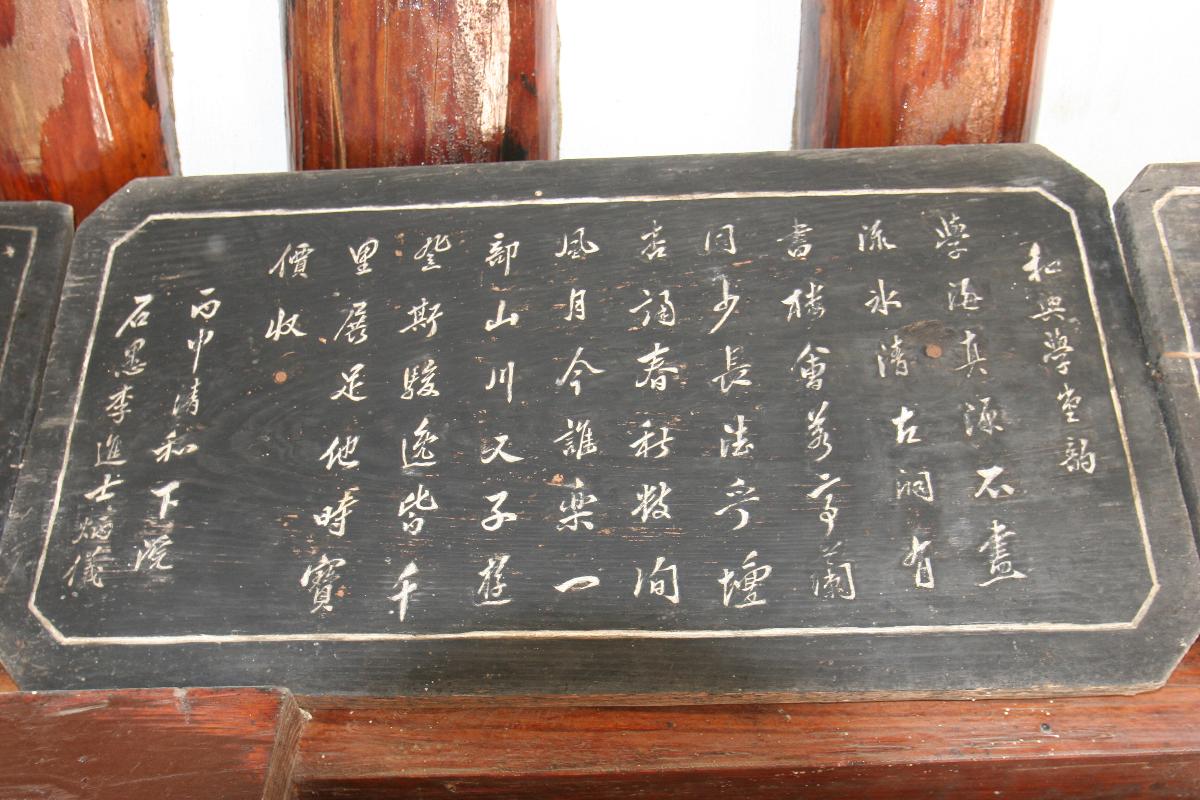 和興學堂韵
學海真源不盡
流水清古洞有
書樓會若亭蘭
同少長法乎壇
杏誦春秋數間
風月今誰樂一
部山川又子遊
登斯駿逸皆千
里展足他時寶
價收
丙申清和下浣
石愚李進士炳儀